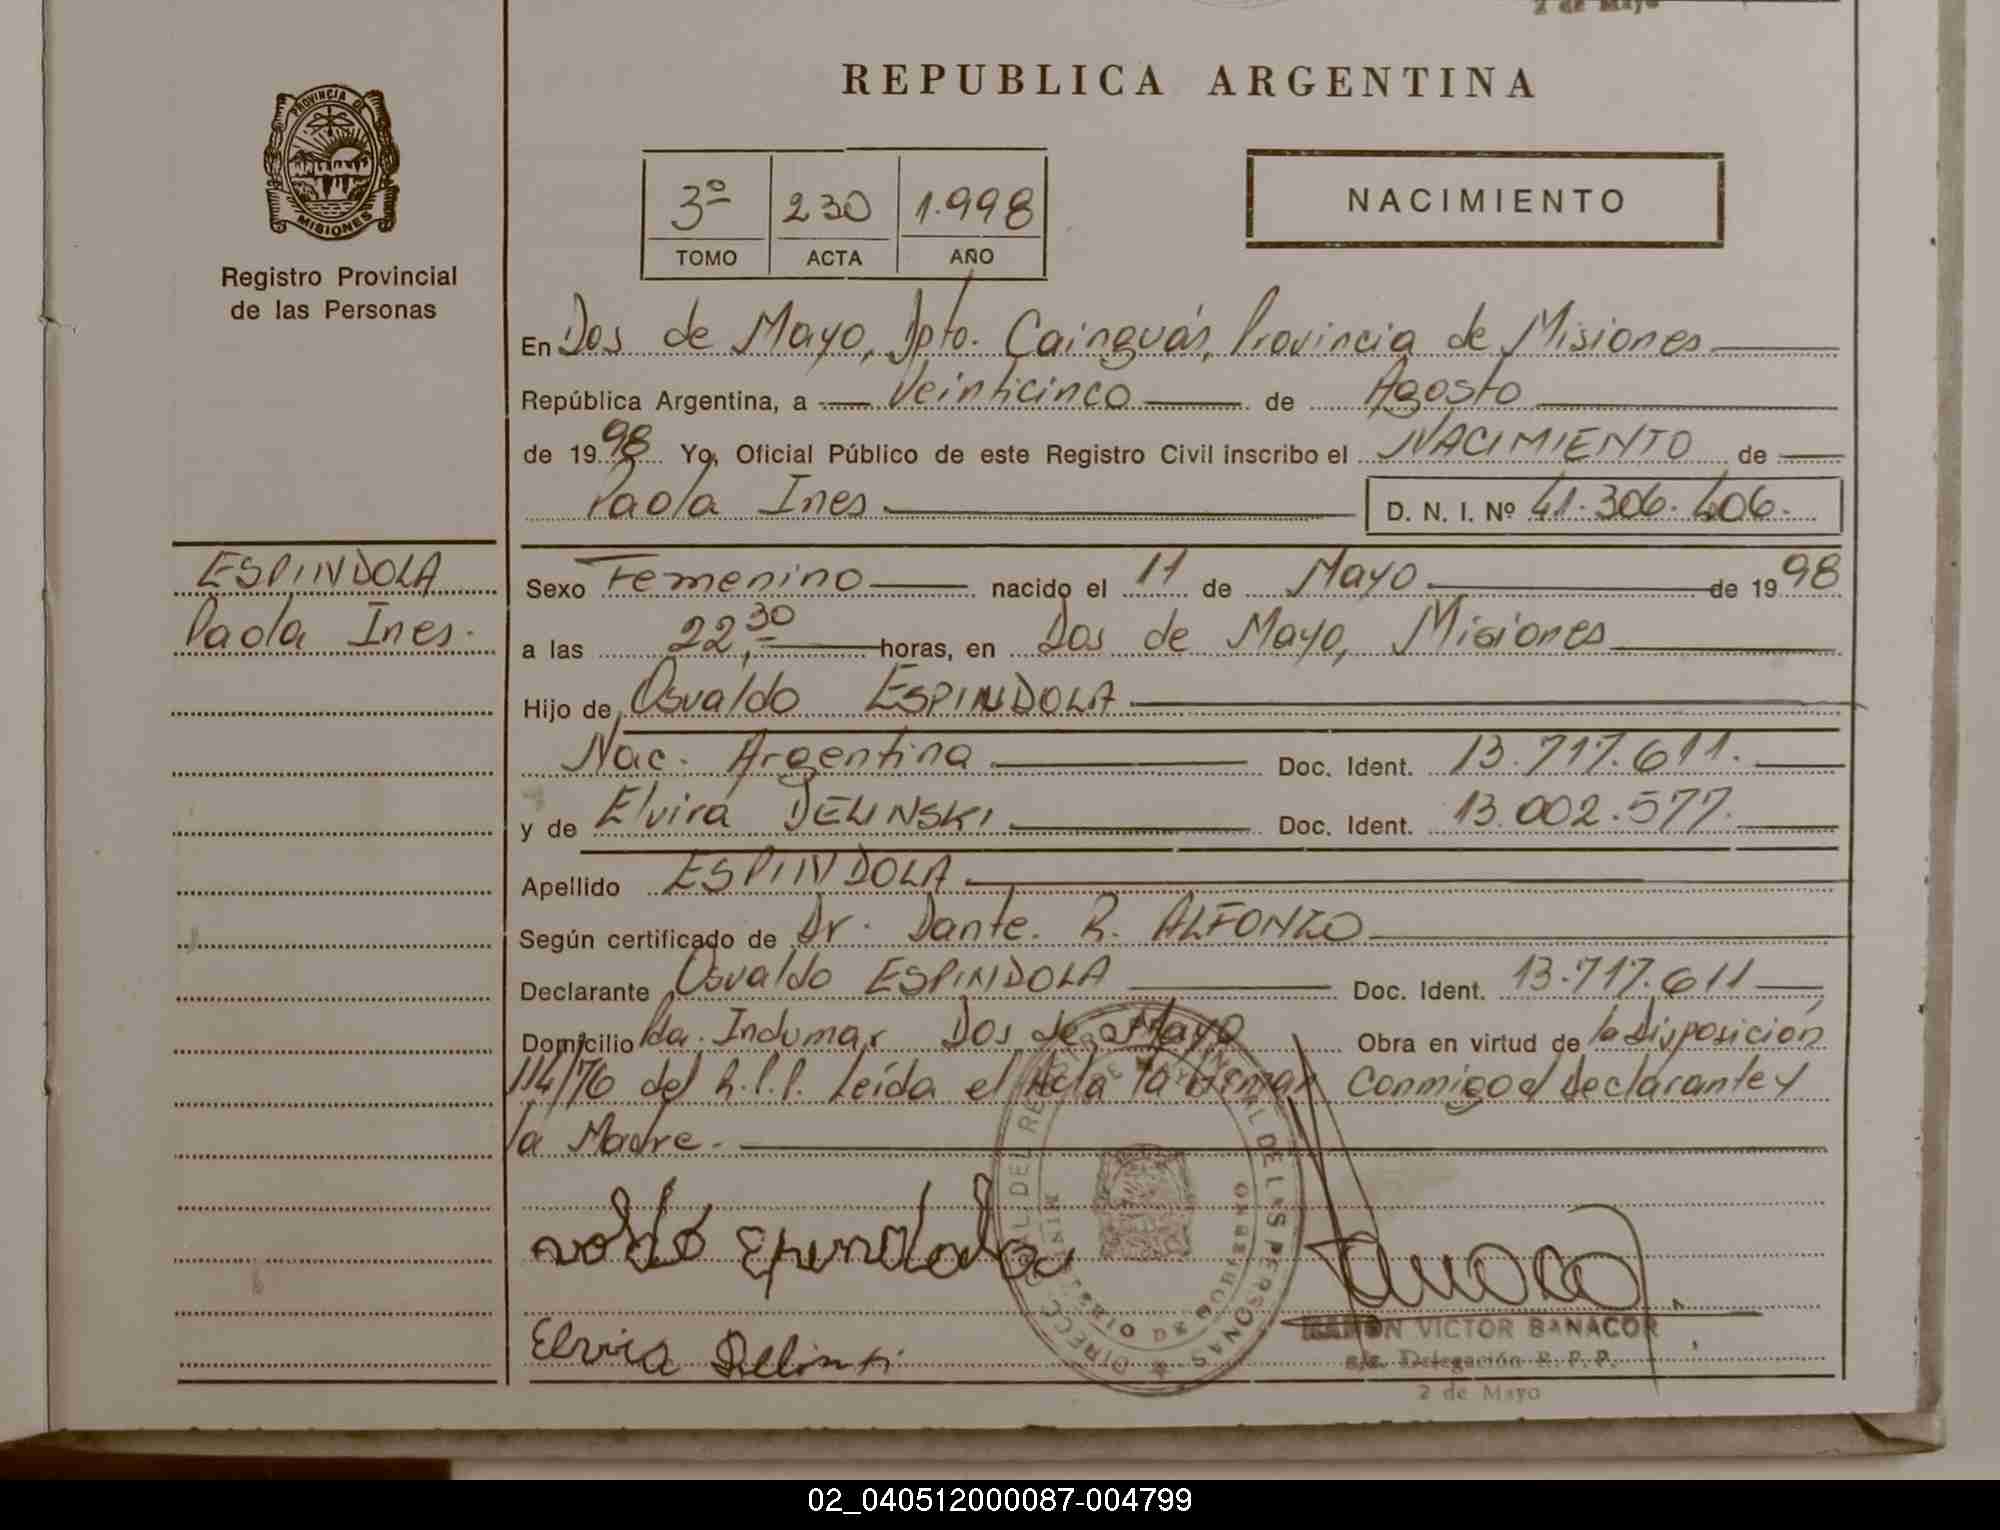 2 de Mayo
REPUBLICA ARGENTINA
PROVINCIA DE
MISIONES
Registro Provincial
de las Personas
3º 230 1.998
TOMO ACTA AÑO
NACIMIENTO
En Dos de Mayo, Dpto. Cainguás, Provincia de Misiones
República Argentina, a Veinticinco de Agosto
de 1998 Yo, Oficial Público de este Registro Civil inscribo el NACIMIENTO de
Paola Ines D. N. I. Nº 41.306.406.
ESPINDOLA
Paola Ines.
Sexo Femenino nacido el 11 de Mayo de 1998
a las 22,30 horas, en Dos de Mayo, Misiones
Hijo de Osvaldo ESPINDOLA
Nac. Argentina Doc. Ident. 13.717.611.
y de Elvira DELINSKI Doc. Ident. 13.002.577.
Apellido ESPINDOLA
Según certificado de Dr. Dante. R. ALFONZO
Declarante Osvaldo ESPINDOLA Doc. Ident. 13.717.611
Domicilio Pda. Indumar Dos de Mayo Obra en virtud de la disposición
114/76 del R.P.P. Leída el Acta la firman Conmigo el declarante y
la Madre.
Elvira Delinski
RAMON VICTOR BANACOR
a/c. Delegación R. P. P.
2 de Mayo
02_040512000087-004799